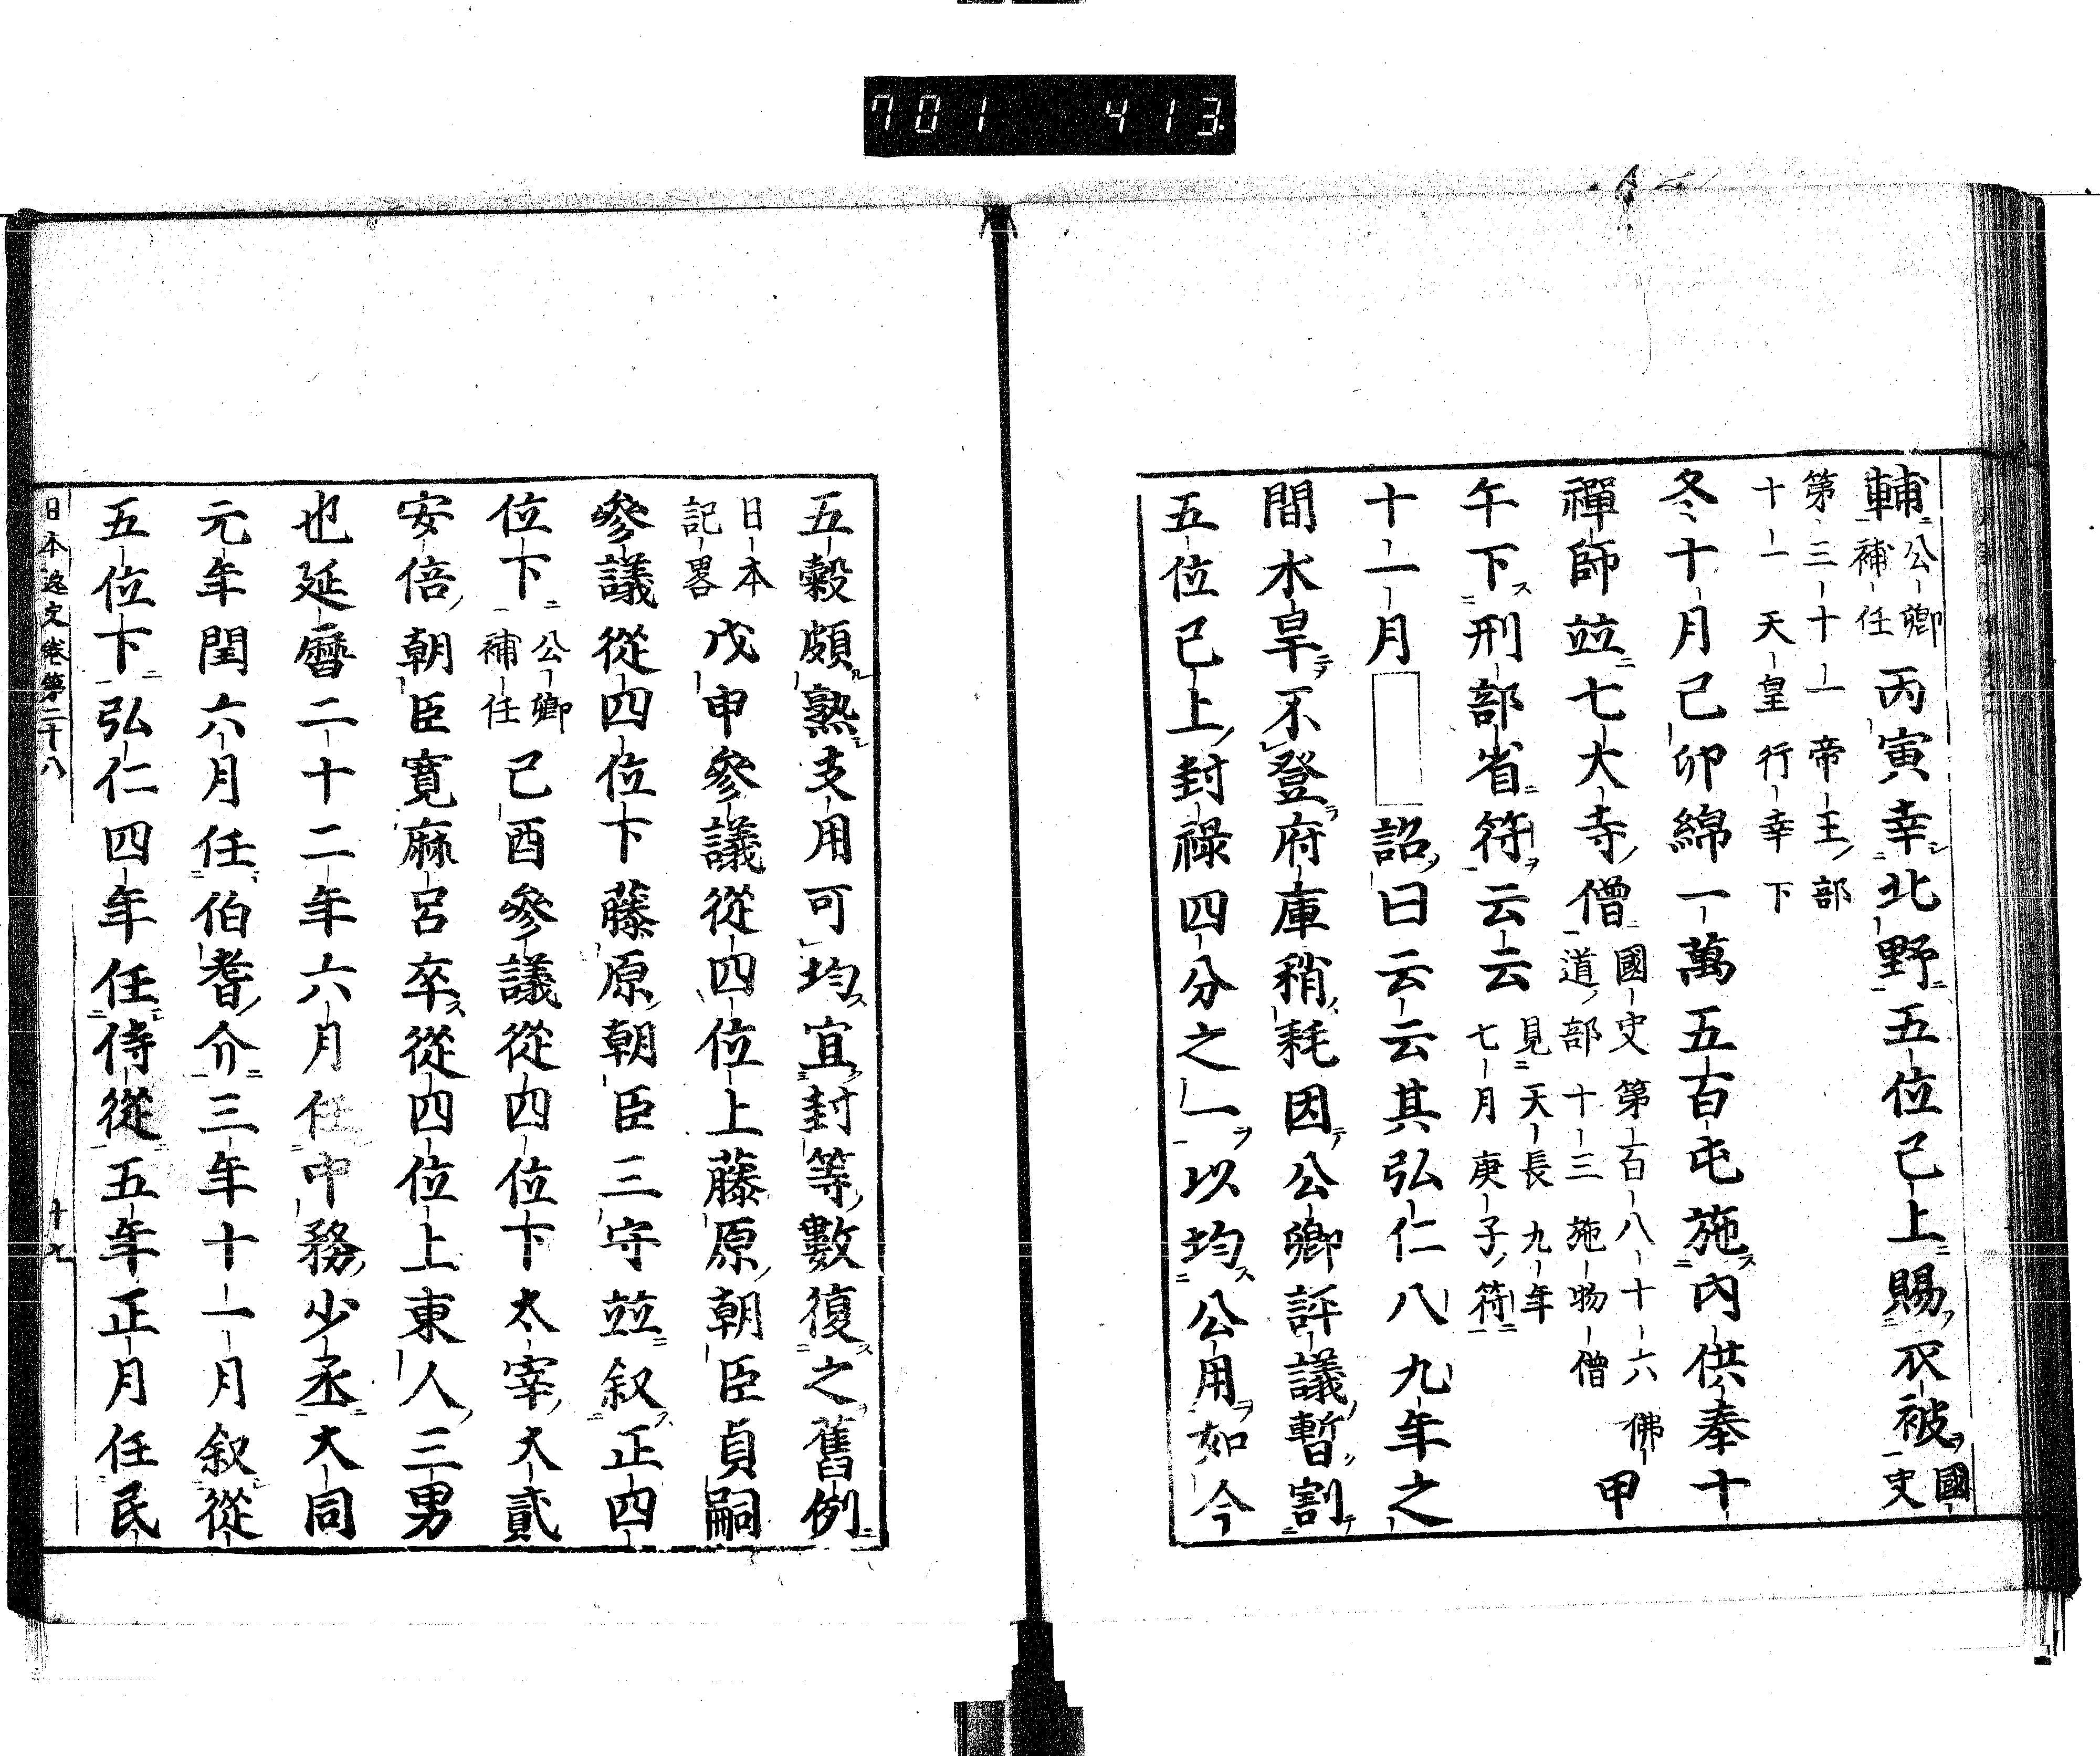 701 413
輔公卿補任丙寅幸北野五位已上賜衣被國史
第三十一帝王部
十一天皇行幸下
冬十月己卯綿一萬五百屯施內供奉十
禪師竝七大寺僧國史第百八十六佛道部十三施物僧甲
午下刑部省符云云見天長九年七月庚子符
十一月詔曰云云其弘仁八九年之
間水旱不登府庫稍耗因公卿評議暫割
五位已上封禄四分之一以均公用如今
五穀頗熟支用可均宜封等數復之舊例
日本記畧戊申參議從四位上藤原朝臣貞嗣
參議從四位下藤原朝臣三守竝叙正四
位下公卿補任己酉參議從四位下太宰大貳
安倍朝臣寛麻呂卒從四位上東人三男
也延曆二十二年六月任中務少丞大同
元年閏六月任伯耆介三年十一月叙從
五位下弘仁四年任侍從五年正月任民
日本逸史卷第二十八
十七